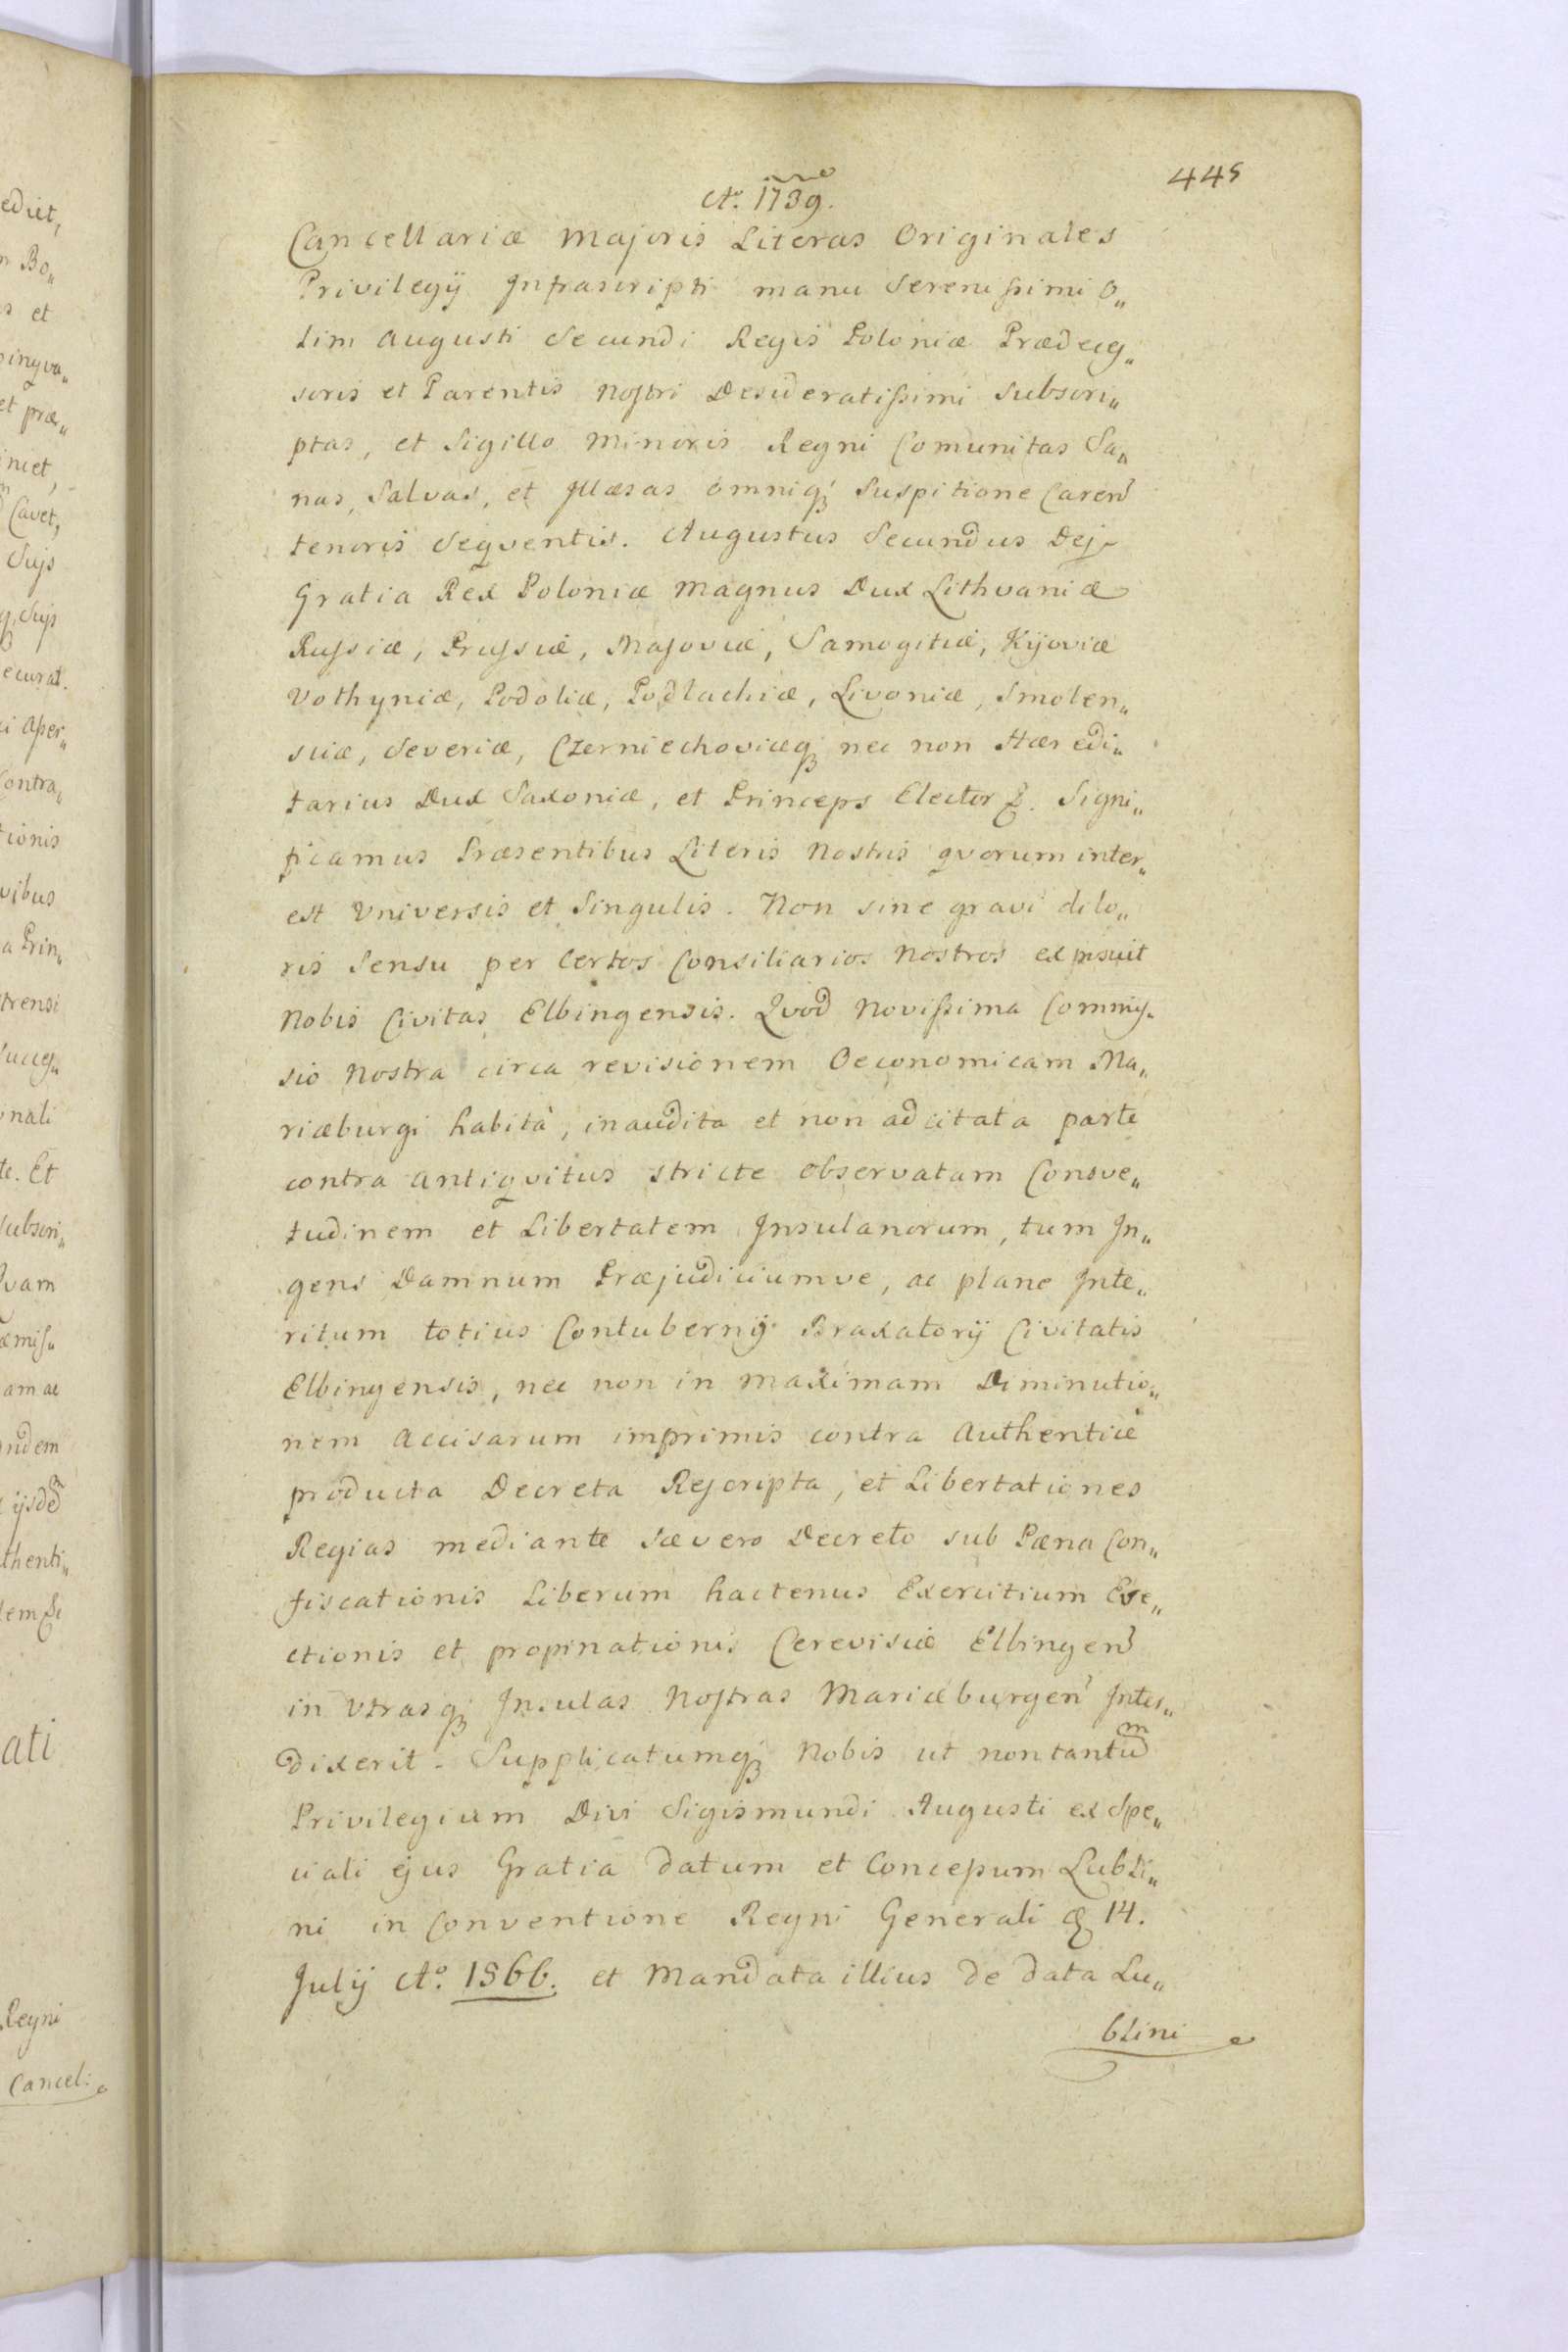 445
Aº. 1739.
Cancellariæ Majoris Literas Originales
Privilegij Infrascripti manu Serenissimi O„
lim Augusti Secundi Regis Poloniæ Prædeces„
soris et Parentis Nostri Desideratissimi Subscri„
ptas, et Sigillo Minoris Regni Comunitas Sa„
nas, Salvas, et Illæsas omniq; Suspitione Caren͂
tenoris Seqventis. Augustus Secundus Dej
Gratia Rex Poloniæ Magnus Dux Lithvaniæ
Russiæ, Prussiæ, Masoviæ, Samogitiæ, Kijoviæ
Volhyniæ, Podoliæ, Podlachiæ, Livoniæ, Smolen„
sciæ, Severiæ, Czerniechoviæq; nec non Hæredi„
tarius Dux Saxoniæ, et Princeps Elector &. Signi„
ficamus Præsentibus Literis Nostris qvorum inter„
est Vniversis et Singulis. Non sine gravi dolo„
ris Sensu per Certos Consiliarios Nostros exposuit
Nobis Civitas Elbingensis. Qvod Novissima Commis„
sio Nostra circa revisionem Oeconomicam Ma„
riæburgi habità, inaudita et non adcitata parte
contra antiqvitus stricte observatam Consve„
tudinem et Libertatem Insulanorum, tum In„
gens Damnum Præjudiciumve, ac plane Inte„
ritum totius Contubernij Braxatorij Civitatis
Elbingensis, nec non in Maximam Diminutio„
nem Accisarum imprimis contra Authentice
producta Decreta Rescripta, et Libertationes
Regias mediante Sævero Decreto sub Pæna Con„
fiscationis Liberum hactenus Exercitium Eve„
ctionis et propinationis Cerevisiæ Elbingen͂
in Vtrasq; Insulas Nostras Mariæburgen͂ Inter„
dixerit. Supplicatumq; Nobis ut non tantuᵐ
Privilegium Divi Sigismundi Augusti ex Spe„
ciali ejus Gratia datum et Concessum Lubli„
ni in Conventione Regni Generali d. 14.
Julij Aº. 1566. et Mandata illius de data Lu„
blini